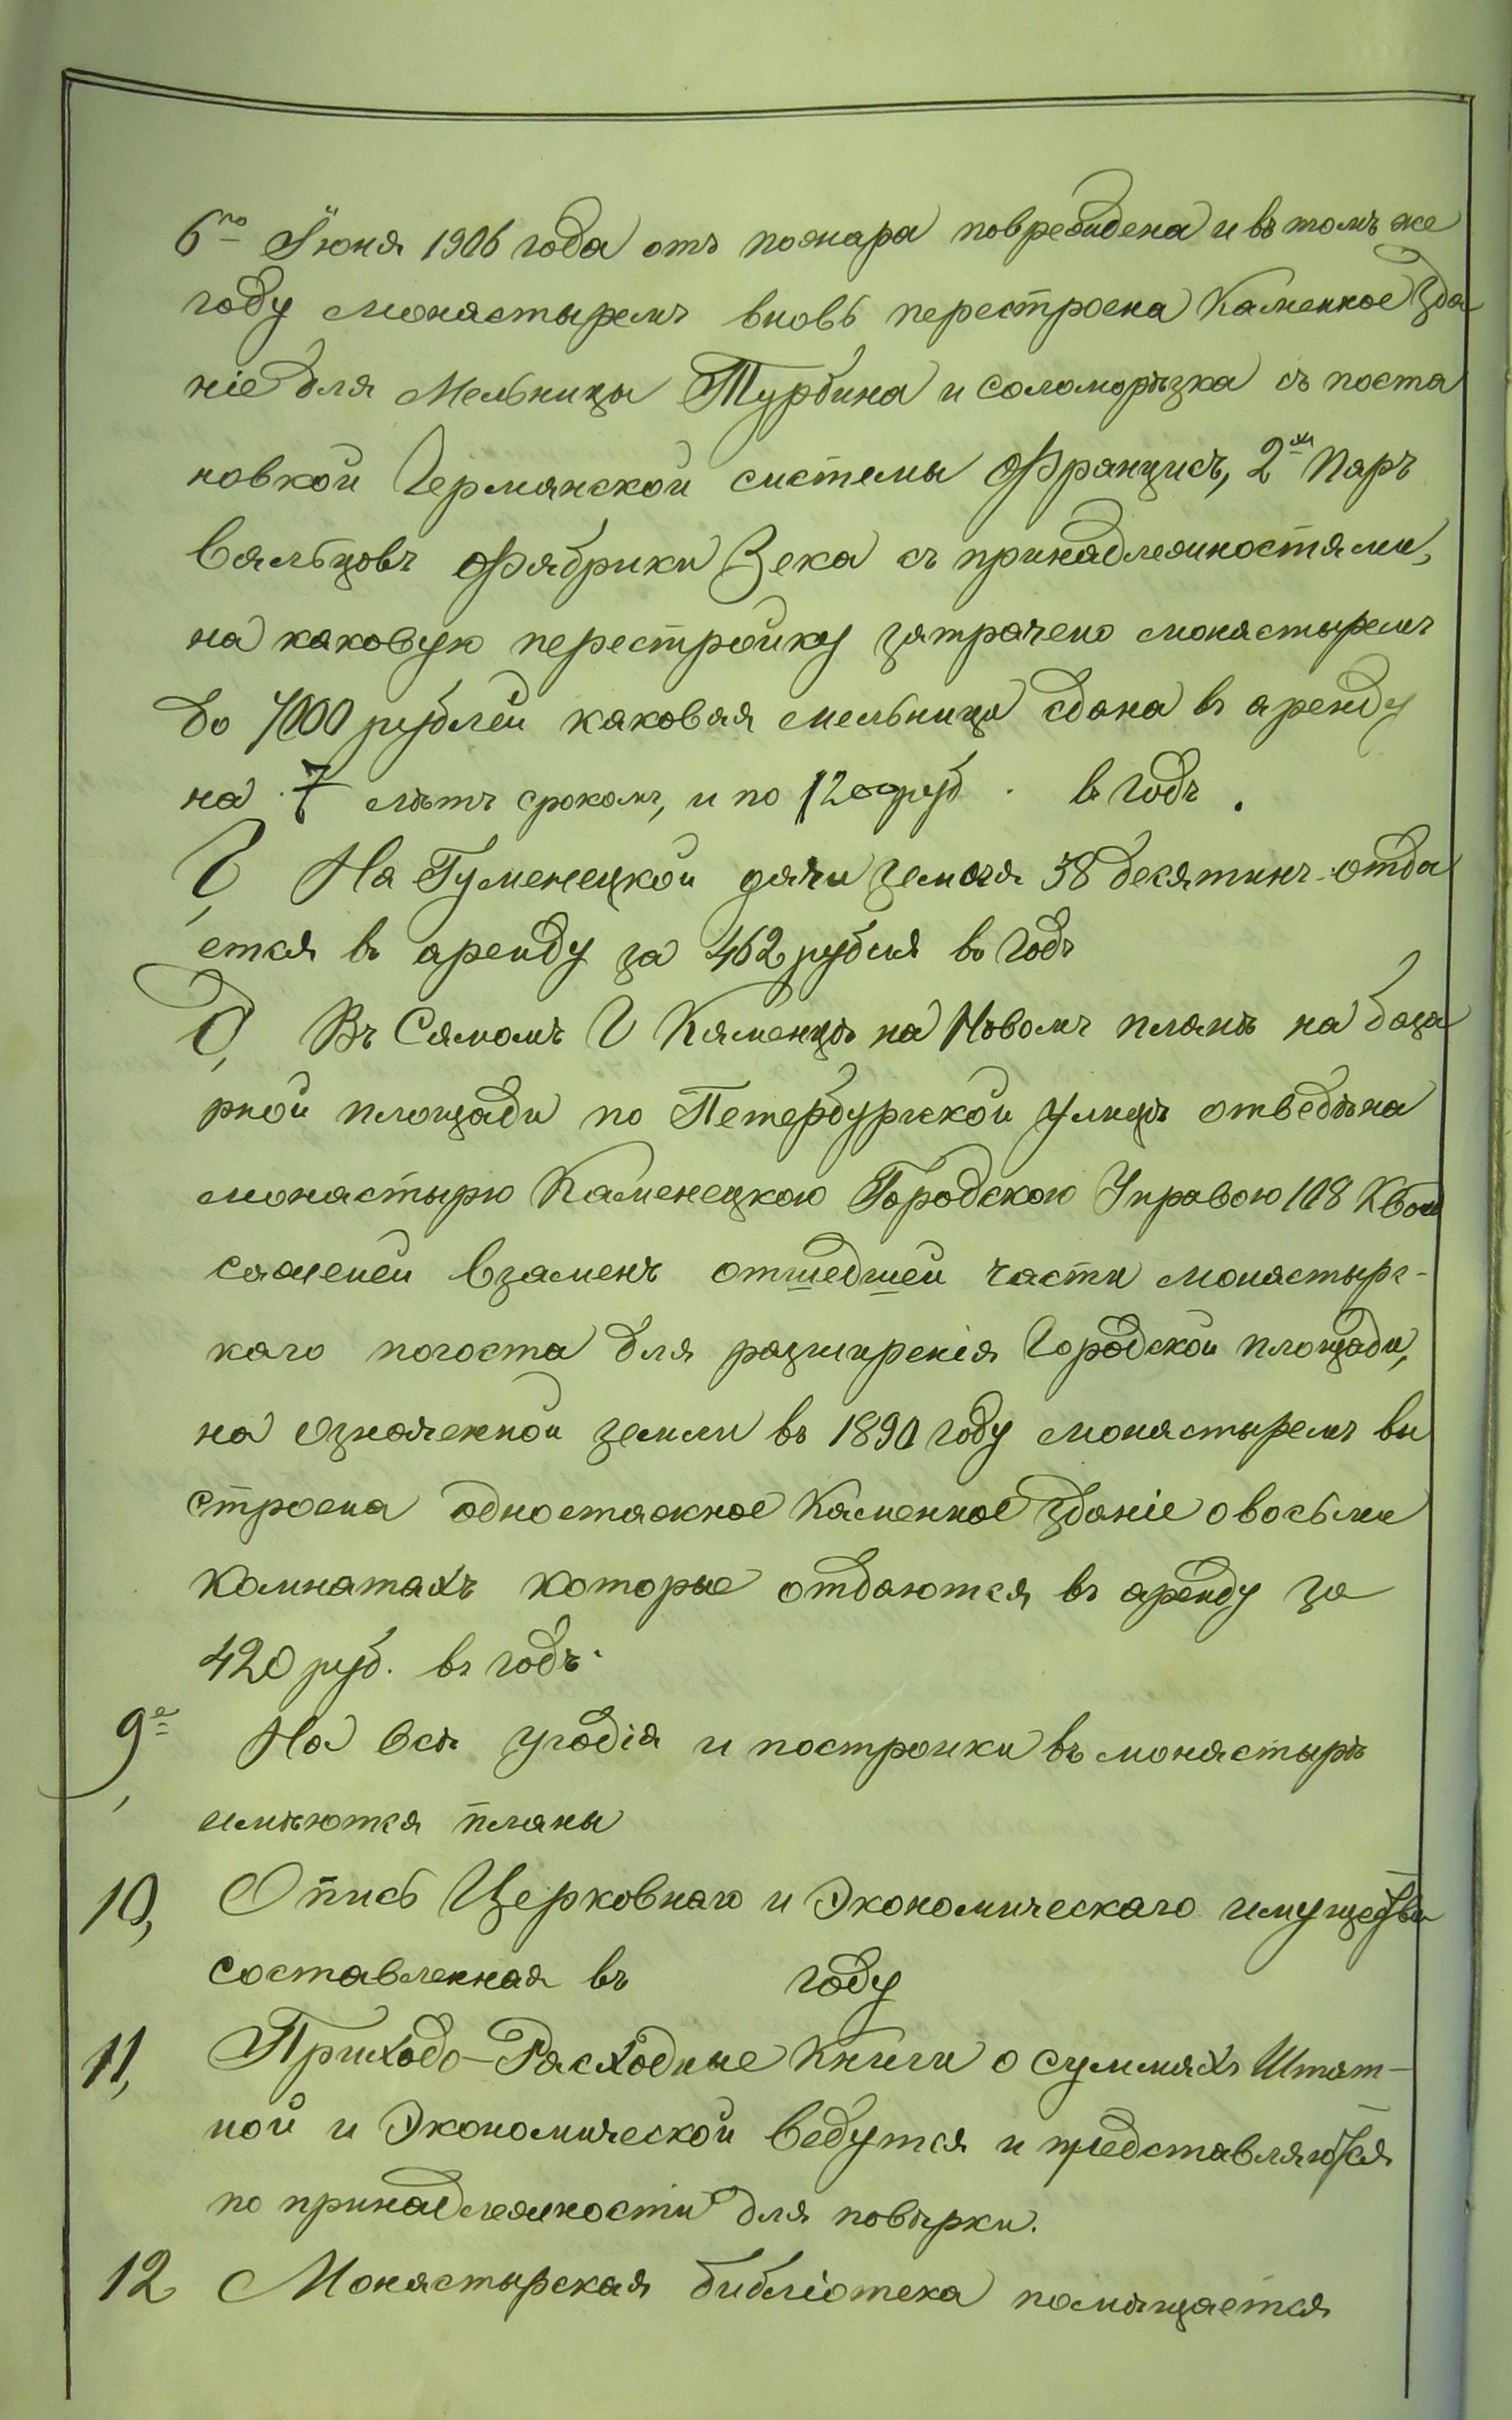 6го Іюня 1906 года отъ пожара повреждена и въ томъ же
году монастыремъ вновь перестроена Каменное Зда
ніе для Мельницы Турбина и соломорѣзка съ поста
новкой Германской системы Францисъ, 2мя Паръ
Вальцовъ Фабрики Зека съ принадлежностями,
на каковую перестройку затрачено монастыремъ
до 7000 рублей каковая мельница сдана въ аренду
на 7 лѣтъ срокомъ, и по 1200 руб. въ Годъ.
Г, На Гуменецкой дачи земля 38 десятинъ отда
ется въ аренду за 462 рубля въ Годъ
Д, Въ Самомъ Г Каменцѣ на Новомъ планѣ на база
рной площади по Петербургской Улицѣ отведѣна
монастырю Каменецкою Городскою Управою 108 Квад
саженей взаменъ отшедшей части монастырс-
каго погоста для разширенія Городской площади,
на означенной земли въ 1890 году монастыремъ вы
строена одноетажное Каменное Зданіе о восьми
Комнатахъ которые отдаются въ аренду за
420 руб. въ годъ.
9е, На всѣ угодія и постройки въ монастырѣ
имѣются планы
10, Опись Церковнаго и Экономическаго имущества
составленная въ году
11, Приходо-Расходные Книги о суммахъ Штат-
ной и Экономической ведутся и представляются
по принадлежности для повѣрки.
12 Монастырская библіотека помѣщается